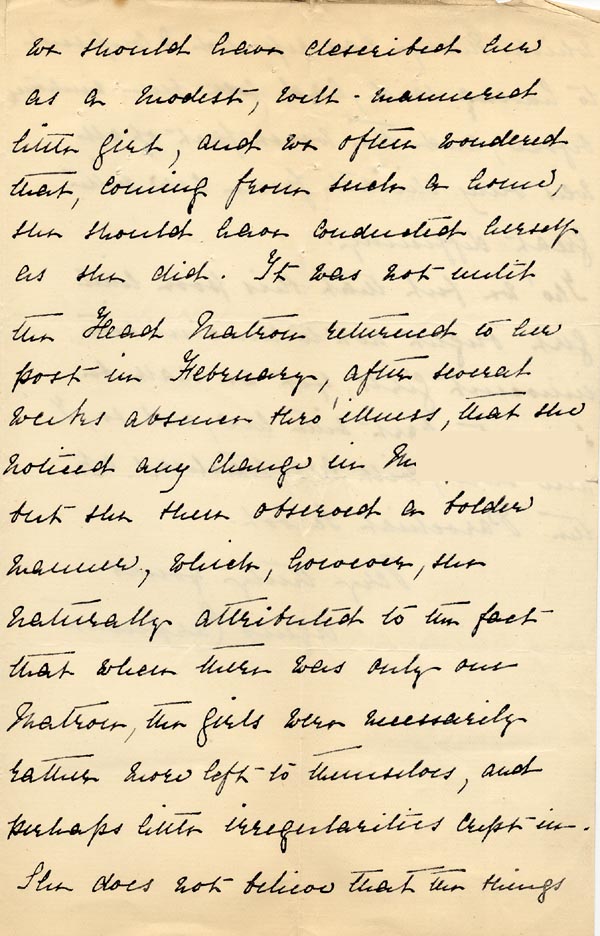 we should have described her
as a modest, well-mannered
little girl, and we often wondered
that, coming from such a home,
she should have conducted herself
as she did. It was not until
the Head Matron returned to her
post in February, after several
weeks absence thro' illness, that she
noticed any change in M
but she then observed a bolder
manner, which, however, she
naturally attributed to the fact
that when there was only one
Matron, the girls were necessarily
rather more left to themselves, and
perhaps little irregularities crept in.
She does not believe that the things